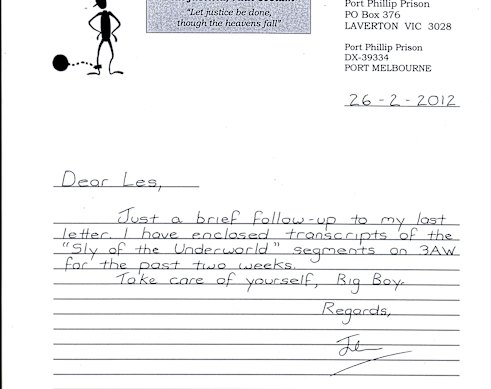 Port Phillip Prison
PO Box 376
LAVERTON VIC 3028
Port Phillip Prison
DX-39334
PORT MELBOURNE
"Let justice be done,
though the heavens fall"
26-2-2012
Dear Les,
Just a brief follow-up to my last
letter. I have enclosed transcripts of the
"Sly of the Underworld" segments on 3AW
for the past two weeks.
Take care of yourself, Big Boy.
Regards,